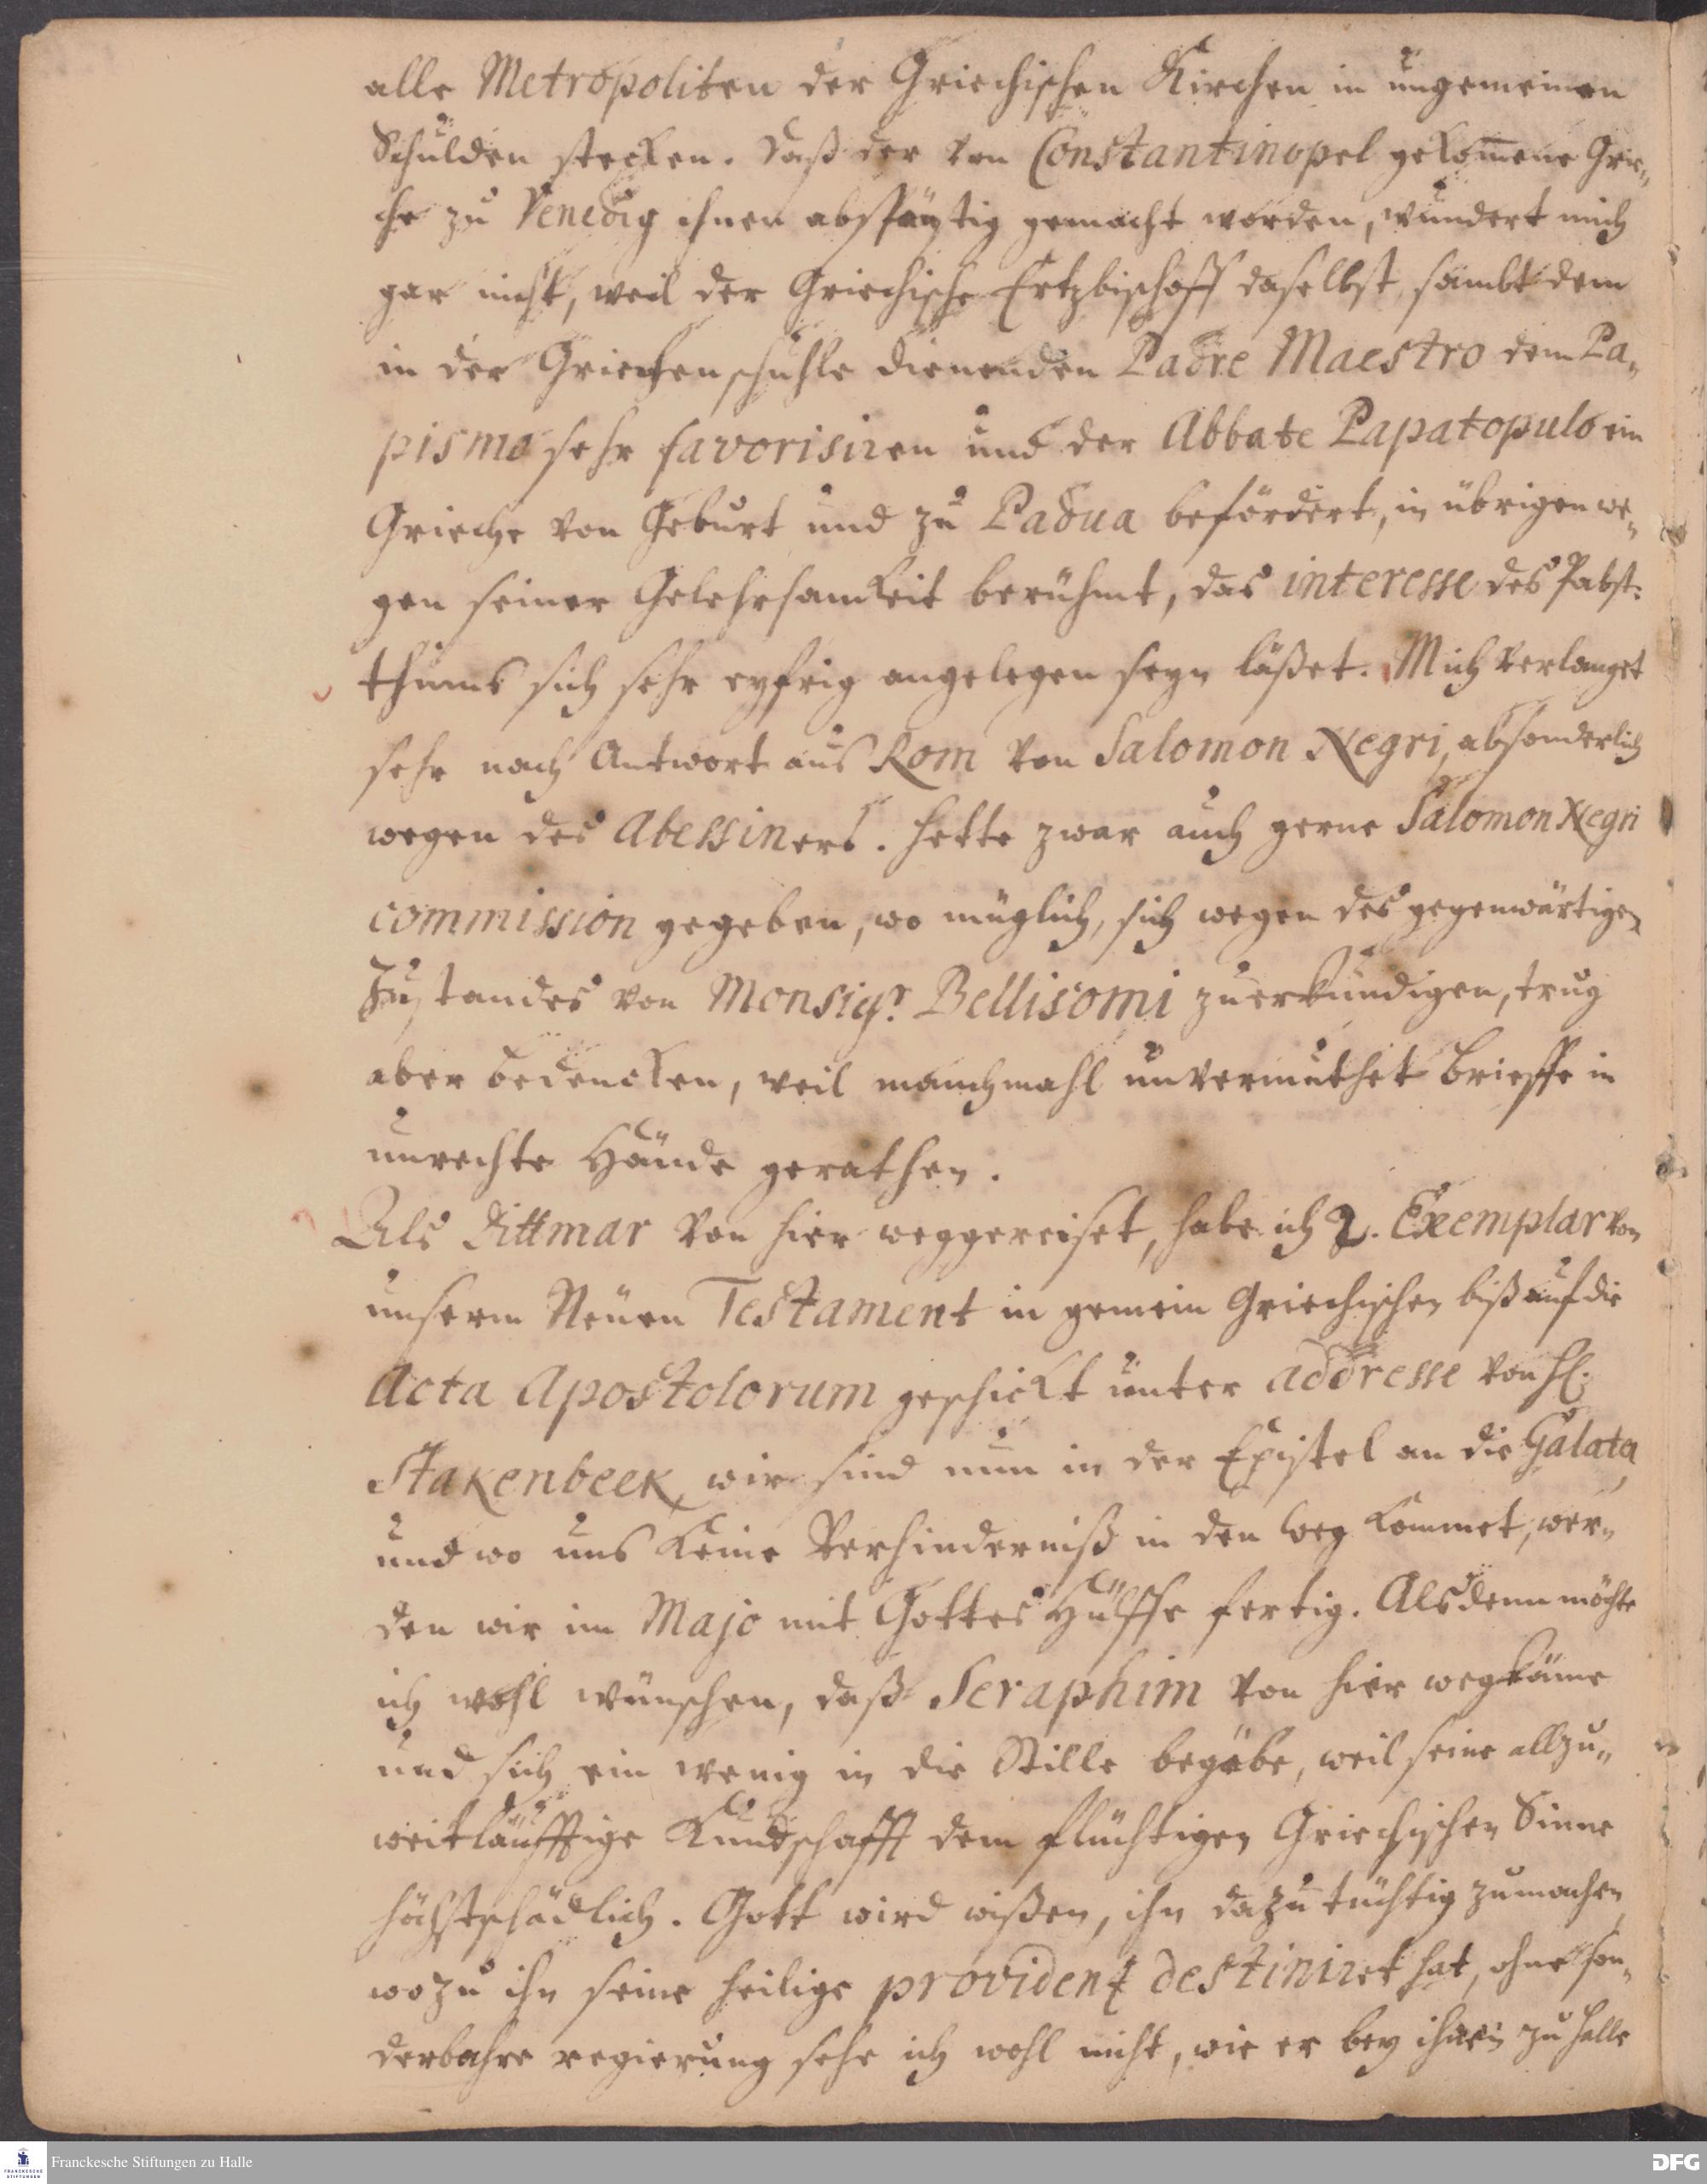 alle Metropoliten der Griechischen Kirchen in ungemeinen
Schulden stecken. Daß der von Constantinopel gekom̄ene Grie„
che zu Venedig ihnen abspäntig gemacht worden, wundert mich
gar nicht, weil der Griechische Ertzbischoff daselbst sambt dem
in der Griechenschuhle dienenden Padre Maestro dem Pa„
pismo sehr favorisiren und der Abbate Papatopulo ein
Grieche von Geburt und zu Padua befördert, in übrigen we„
gen seiner Gelehrsamkeit berühmt, das interesse des Pabst:
thums sich sehr eyfrig angelegen seyn läßet. Mich verlanget
sehr nach Antwort aus Rom von Salomon Negri, absonderlich
wegen des Abessiners. hette zwar auch gerne Salomon Negri
commission gegeben, wo müglich, sich wegen des gegenwärtigen
Zustandes von Monsigr. Bellisomi zuerkundigen, trug
aber bedencken, weil manchmahl unvermuthet Brieffe in
unrechte Hände gerathen.
Als Dittmar von hier weggereiset, habe ich 2. Exemplar von
unserm Neuen Testament in gemein Griechischen biß auf die
Acta Apostolorum geschickt unter addresse von H.
Stakenbeek, wir sind nun in der Epistel an die Galata,
und wo uns keine Verhinderniß in den Weg kommet, wer„
den wir im Majo mit Gottes Hülffe fertig. Alsdenn möchte
ich wohl wünschen, daß Seraphim von hier wegkäme
und sich ein wenig in die Stille begäbe, weil seine allzu„
weitläufftige Kundschafft dem flüchtigen Griechischen Sinne
höchstschädlich. Gott wird wißen, ihn dazu tüchtig zumachen,
wozu ihn seine heilige providentz destiniret hat, ohne son„
derbahre regierung sehe ich wohl nicht, wie er bey ihnen zu Halle
Franckesche Stiftungen zu Halle
DFG